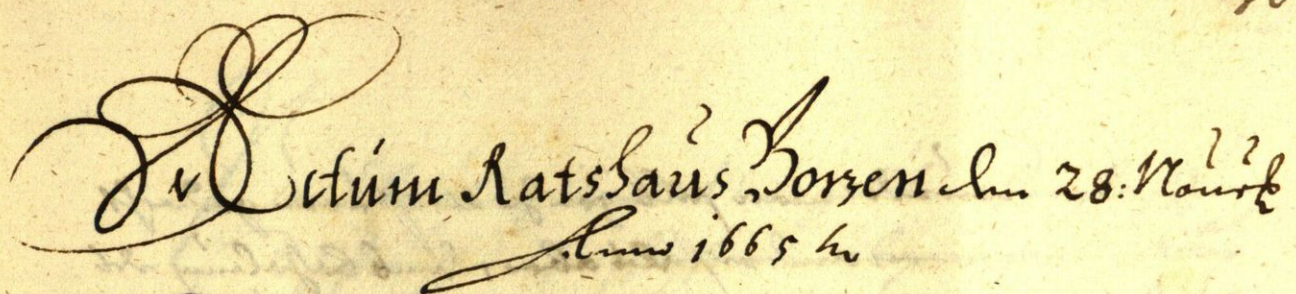 Actum Ratshaus Botzen den 28: Novrb
Anno 1665